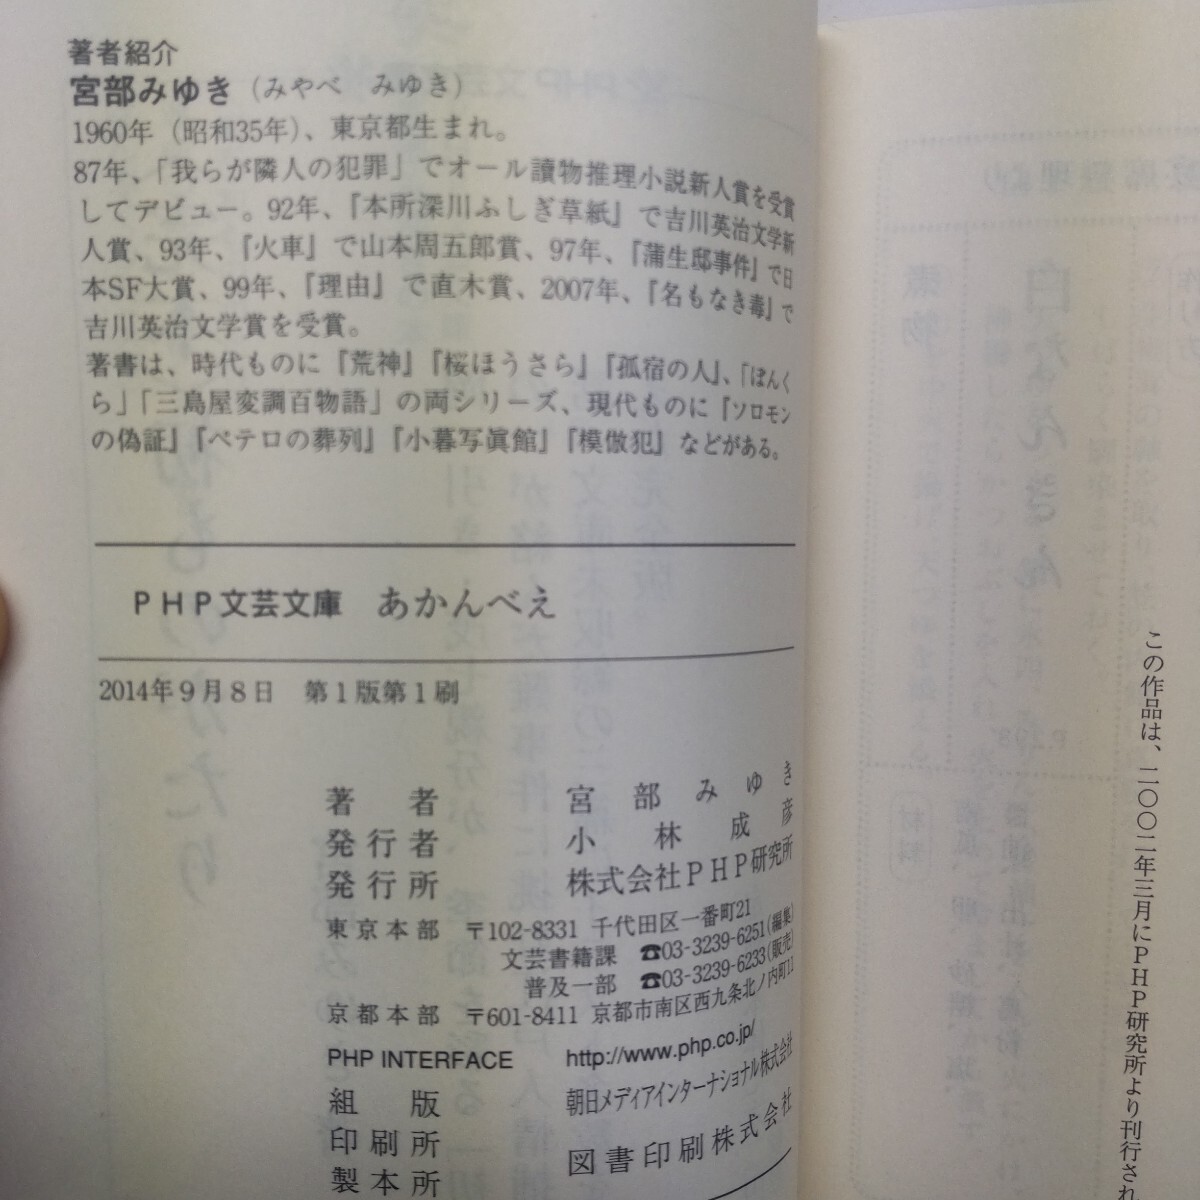 著者紹介
宮部みゆき(みやべ　みゆき)
1960年(昭和35年)、東京都生まれ。
87年、「我らが隣人の犯罪」でオール讀物推理小説新人賞を受賞
してデビュー。92年、『本所深川ふしぎ草紙』で吉川英治文学新
人賞、93年、『火車』で山本周五郎賞、97年、『蒲生邸事件』で日
本SF大賞、99年、『理由』で直木賞、2007年、『名もなき毒』で
吉川英治文学賞を受賞。
著書は、時代ものに『荒神』『桜ほうさら』『孤宿の人』、「ぼんく
ら」「三島屋変調百物語」の両シリーズ、現代ものに『ソロモン
の偽証』『ペテロの葬列』『小暮写眞館』『模倣犯』などがある。
PHP文芸文庫　あかんべえ
2014年9月8日　第1版第1刷
著者　宮部みゆき
発行者　小林成彦
発行所　株式会社PHP研究所
東京本部　〒102-8331 千代田区一番町21
文芸書籍課　☎03-3239-6251(編集)
普及一部　☎03-3239-6233(販売)
京都本部　〒601-8411 京都市南区西九条北ノ内町11
PHP INTERFACE　http://www.php.co.jp/
組版　朝日メディアインターナショナル株式会社
印刷所　図書印刷株式会社
製本所
この作品は、二〇〇二年三月にPHP研究所より刊行され